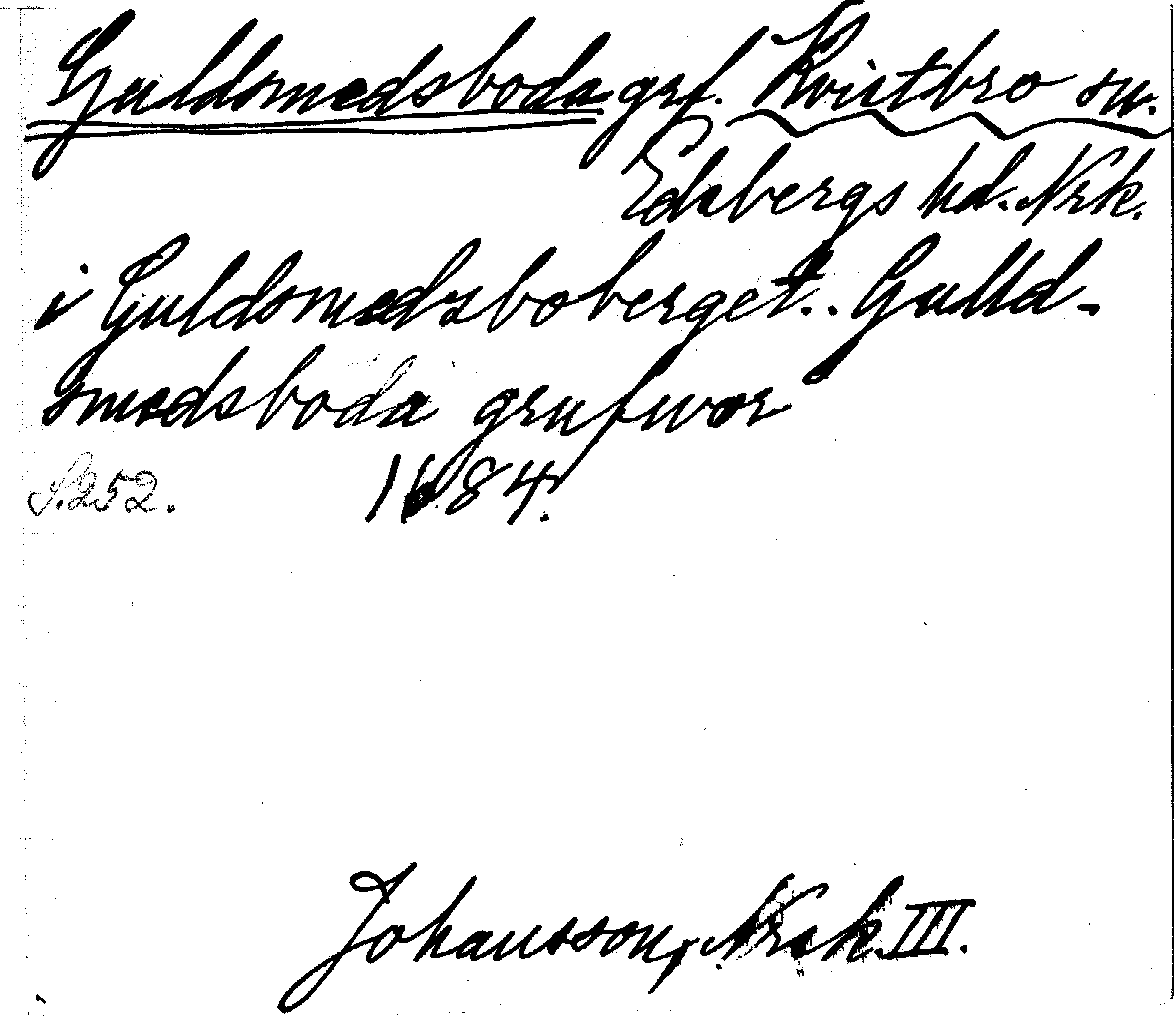 Guldsmedsboda grf. Kvistbro sn.
Edsbergs hd. Nrk.
i Guldsmedsboberget. Gulld-
smedsboda grufwor
S. 252. 1684.
Johansson, Nrk. III.